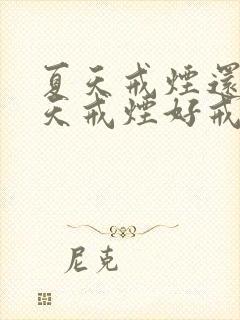 夏天戒煙還
天戒煙好戒
尼克